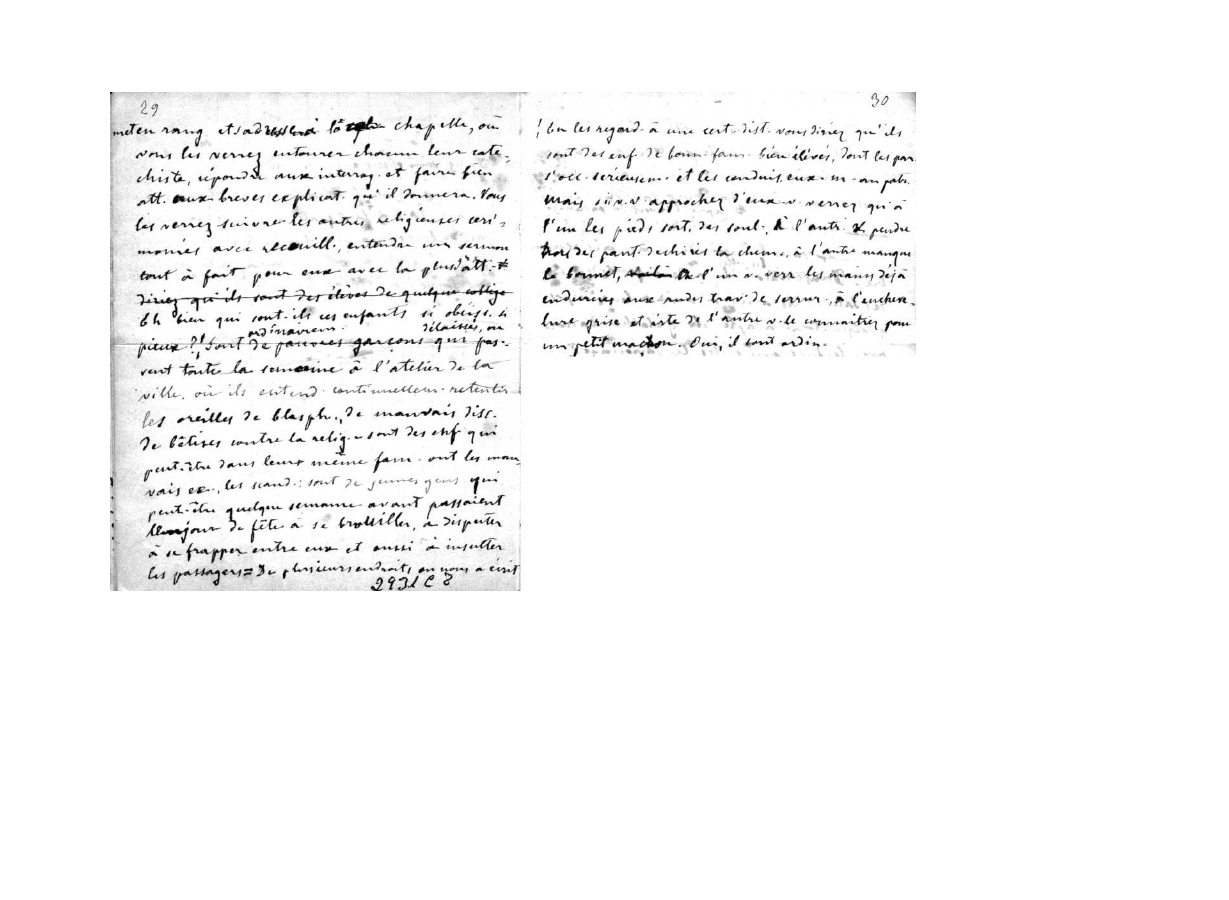 29
met en rang et s'adressent à la chapelle, où
vous les verrez entourer chacun leur caté-
chiste, répondre aux interrog. et faire bien
att. aux breves explicat. qu'il donnera. Vous
les verrez suivre les autres religieuses ceri-
monies avec recueill., entendre un sermon
tout à fait pour eux avec la plus d'att.
diriez qu'ils sont des élèves de quelque collége
Eh bien qui sont-ils ces enfants si obéiss. si
ordinairem. délaissés, ou
pieux ?! Sont de pauvres garçons qui pas-
sent toute la semaine à l'atelier de la
ville, où ils entend. continuellem. retentir
les oreilles de blasph., de mauvais disc.
de bêtises contre la relig. - sont des enf. qui
peut-être dans leurs même fam. ont les mau-
vais ex., les scand.: sont de jeunes gens qui
peut-être quelque semaine avant passaient
jour de fête à se brouiller, à disputer
à se frapper entre eux et aussi à insulter
les passagers = De plusieurs endroits on nous a écrit
2931 C 8
30
! En les regard. à une cert. dist. vous diriez qu'ils
sont des enf. de bonn. fam. bien élevés, dont les par.
s'occ. serieusem. et les conduis. eux-m. au patr.
mais si v. v. approchez d'eux v. verrez qu'à
l'un les pieds sort. des soul., à l'autre perdre
hors des pant. dechirés la chem., à l'autre manque
le bonnet, l'un v. verr. les mains déjà
endurcies aux rudes trav. de serrur., à l'enchevê-
lure grise et irte de l'autre v. le connaitrez pour
un petit maçon. Oui, il sont ordin.